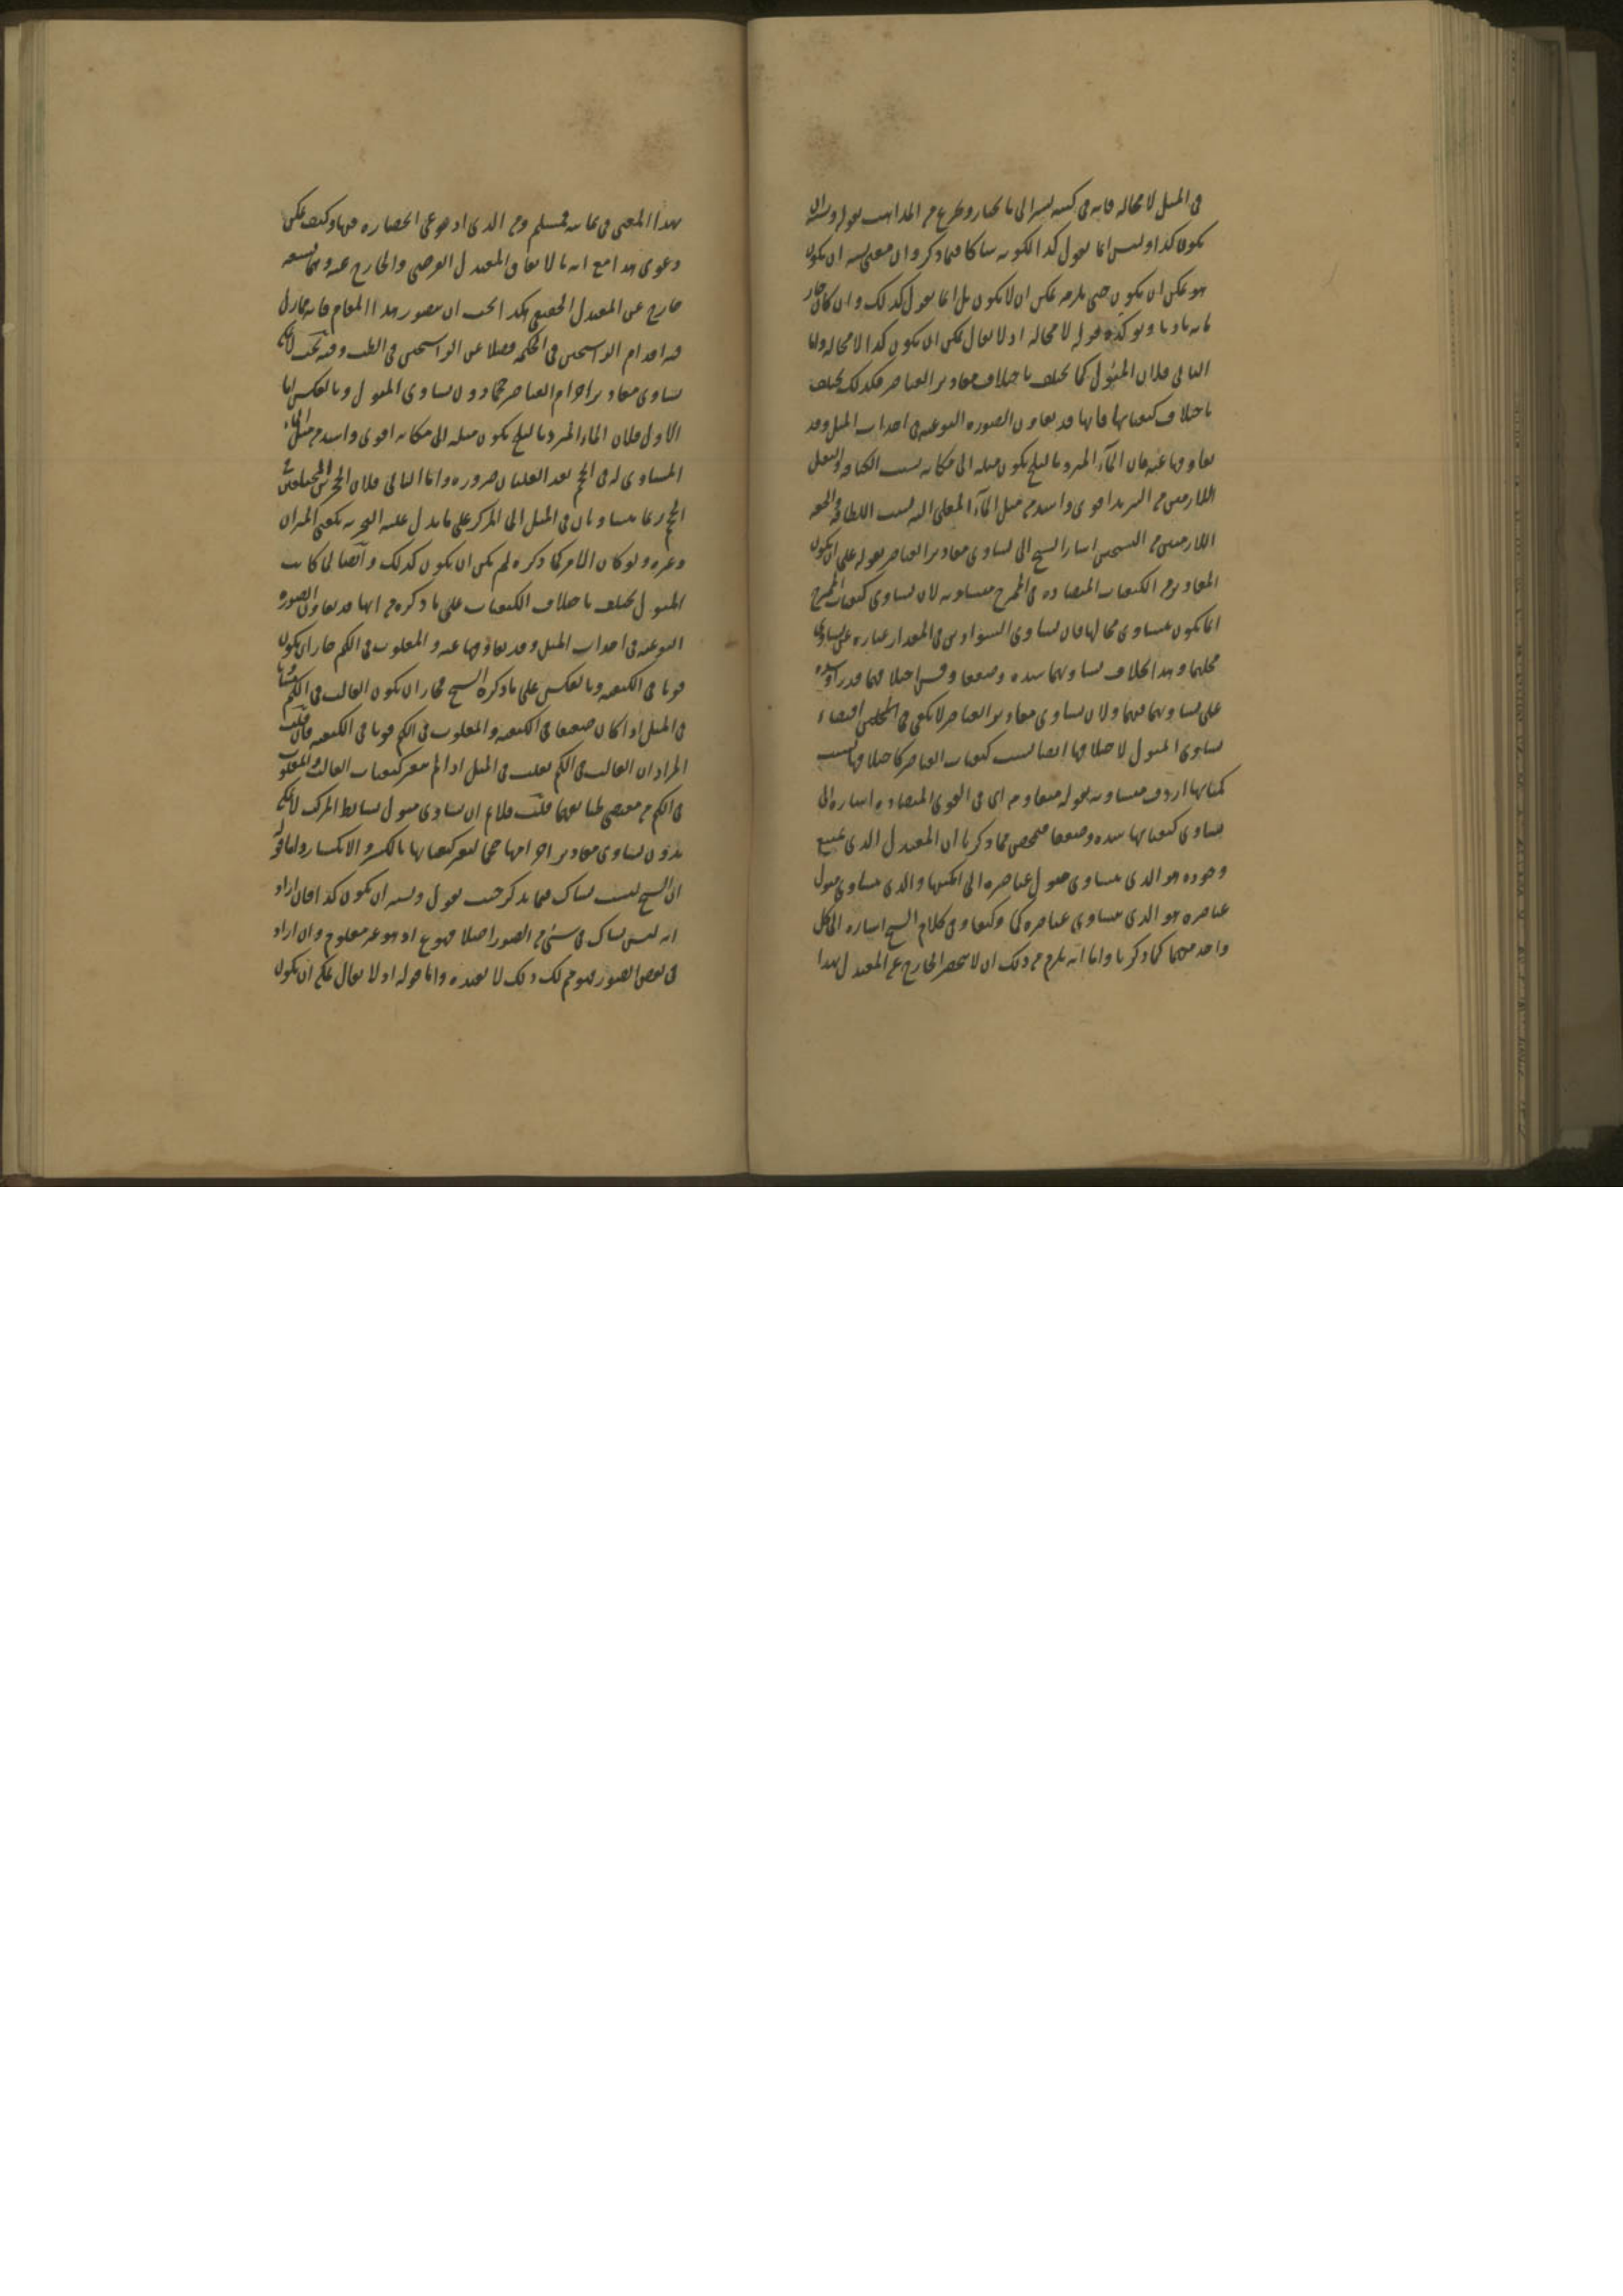 في الميل لا محالة فانه في كتبه يشير الى ما يختار ويطرح من المذاهب بقوله ويشبه ان
يكون كذا وليس انما يقول كذا لكونه شاكا فيما ذكر وان معنى يشبه ان يكون
هو يمكن ان يكون حتى يلزمه يمكن ان لا يكون بل انما يقول كذلك وان كان
قوله لا محالة اذ لا يقال يمكن ان يكون كذا لا محالة واما
الثاني فلان الميول كما تختلف باختلاف مقادير العناصر فكذلك تختلف
باختلاف كيفياتها فانها قد تعاون الصورة النوعية في احداث الميل وقد
تعاوقها عنه فان الماء المبرد بالثلج يكون ميله الى مكانه بسبب الكثافة والثقل
اللازمين من التبريد اقوى واشد من ميل الماء المغلى اليه بسبب اللطافة والخفة
اللازمين من التسخين اشار الشيخ الى تساوي مقادير العناصر بقوله على ان يكون
المقادير من الكيفيات المتضادة في الممتزج متساوية لان تساوي كيفيات الممتزج
انما يكون بتساوي محالها فان تساوي السوادين في المقدار عبارة عن تساوي
محليهما وهذا بخلاف تساويهما شدة وضعفا وقس اختلافهما
على تساويهما فيهما ولان تساوي مقادير العناصر لا يكفي في اقتضاء
تساوي الميول لاختلافها ايضا بسبب كيفيات العناصر كاختلافها بسبب
كمياتها اردف متساوية بقوله متقاومة اي في القوى المتضادة اشارة الى
تساوي كيفياتها شدة وضعفا فتلخص مما ذكرنا ان المعتدل الذي يمتنع
وجوده هو الذي يتساوى ميول عناصره الى امكنتها والذي يتساوى ميول
عناصره هو الذي يتساوى عناصره كما وكيفا وفي كلام الشيخ اشارة الى كل
واحد منهما كما ذكرنا واما انه يلزم من ذلك ان لا ينحصر الخارج عن المعتدل بهذا
بهذا المعنى في ثمانية فمسلم ومن الذي ادعى انحصاره فيها وكيف يمكن
دعوى هذا مع ان المعتدل الفرضي والخارج عنه
خارج عن المعتدل الحقيقي هكذا يجب ان يتصور هذا المقام فانه مما زل
فيه اقدام الراسخين في الحكمة فضلا عن الراسخين في الطب وفيه بحث لانه يمكن
تساوي مقادير اجرام العناصر حجما دون تساوي الميول وبالعكس اما
الاول فلان الماء المبرد بالثلج يكون ميله الى مكانه اقوى واشد من ميل الماء
المساوي له في الحجم بعد الغليان ضرورة واما الثاني فلان الحجرين المختلفين في
الحجم ربما يتساويان في الميل الى المركز على ما يدل عليه التجربة بكفتي الميزان
وغيره ولو كان الامر كما ذكره لم يمكن ان يكون كذلك وايضا لما كانت
الميول تختلف باختلاف الكيفيات على ما ذكره من انها قد تعاون الصورة
النوعية في احداث الميل وقد تعاوقها عنه والمغلوب في الكم جاز ان يكون
قويا في الكيفية وبالعكس على ما ذكره الشيخ فجاز ان يكون الغالب في الكم
في الميل اذا كان ضعيفا في الكيفية والمغلوب في الكم قويا في الكيفية فان قلت
المراد ان الغالب في الكم يغلب في الميل اذا لم يتغير كيفيات الغالب والمغلوب
في الكم من مقتضى طبائعهما قلت فلا يمتنع ان يتساوى ميول بسائط المركب
بدون تساوي مقادير اجرامها حجما لتغير كيفياتها بالكسر والانكسار واما قوله
ان الشيخ ليس بشاك فيما يذكر حيث يقول ويشبه ان يكون كذا فان اراد
انه ليس بشاك في شيء من الصور اصلا فهو ممنوع اذ هو غير معلوم وان اراد
في بعض الصور فهو مسلم لكن ذلك لا يفيده واما قوله اذ لا يقال يمكن ان يكون